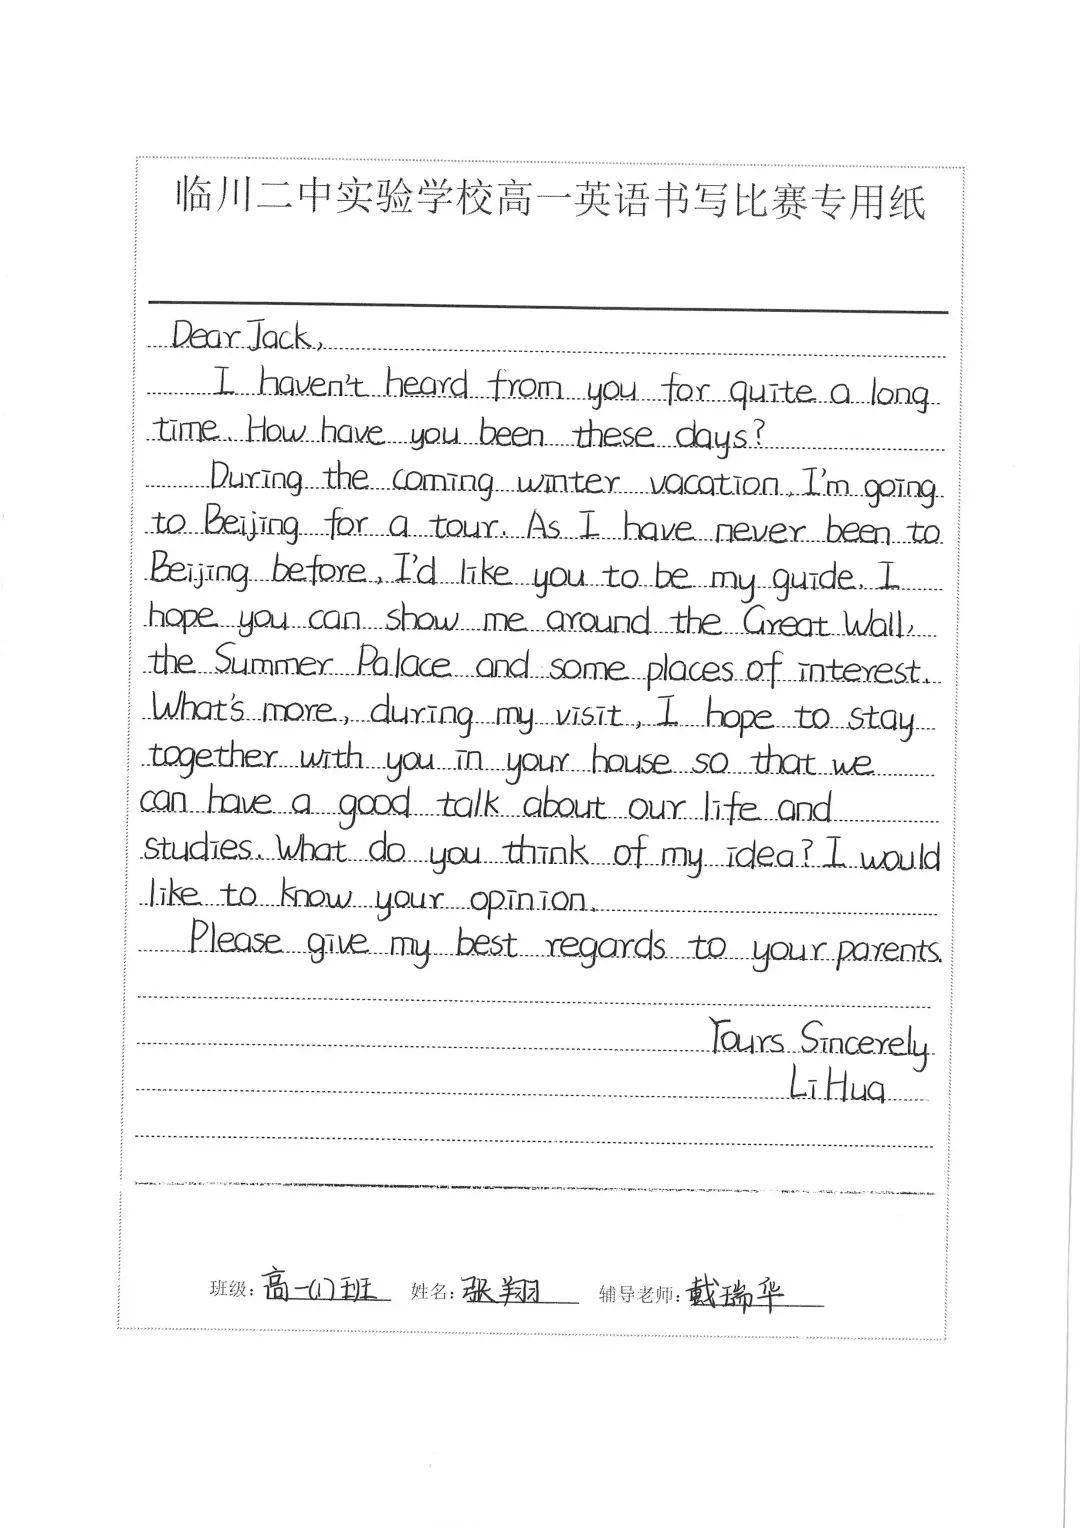 临川二中实验学校高一英语书写比赛专用纸
Dear Jack,
I haven't heard from you for quite a long
time. How have you been these days?
During the coming winter vacation, I'm going
to Beijing for a tour. As I have never been to
Beijing before, I'd like you to be my guide. I
hope you can show me around the Great Wall,
the Summer Palace and some places of interest.
What's more, during my visit, I hope to stay
together with you in your house so that we
can have a good talk about our life and
studies. What do you think of my idea? I would
like to know your opinion.
Please give my best regards to your parents.
Yours Sincerely
Li Hua
班级: 高一(1)班 姓名: 张翔 辅导老师: 戴瑞华